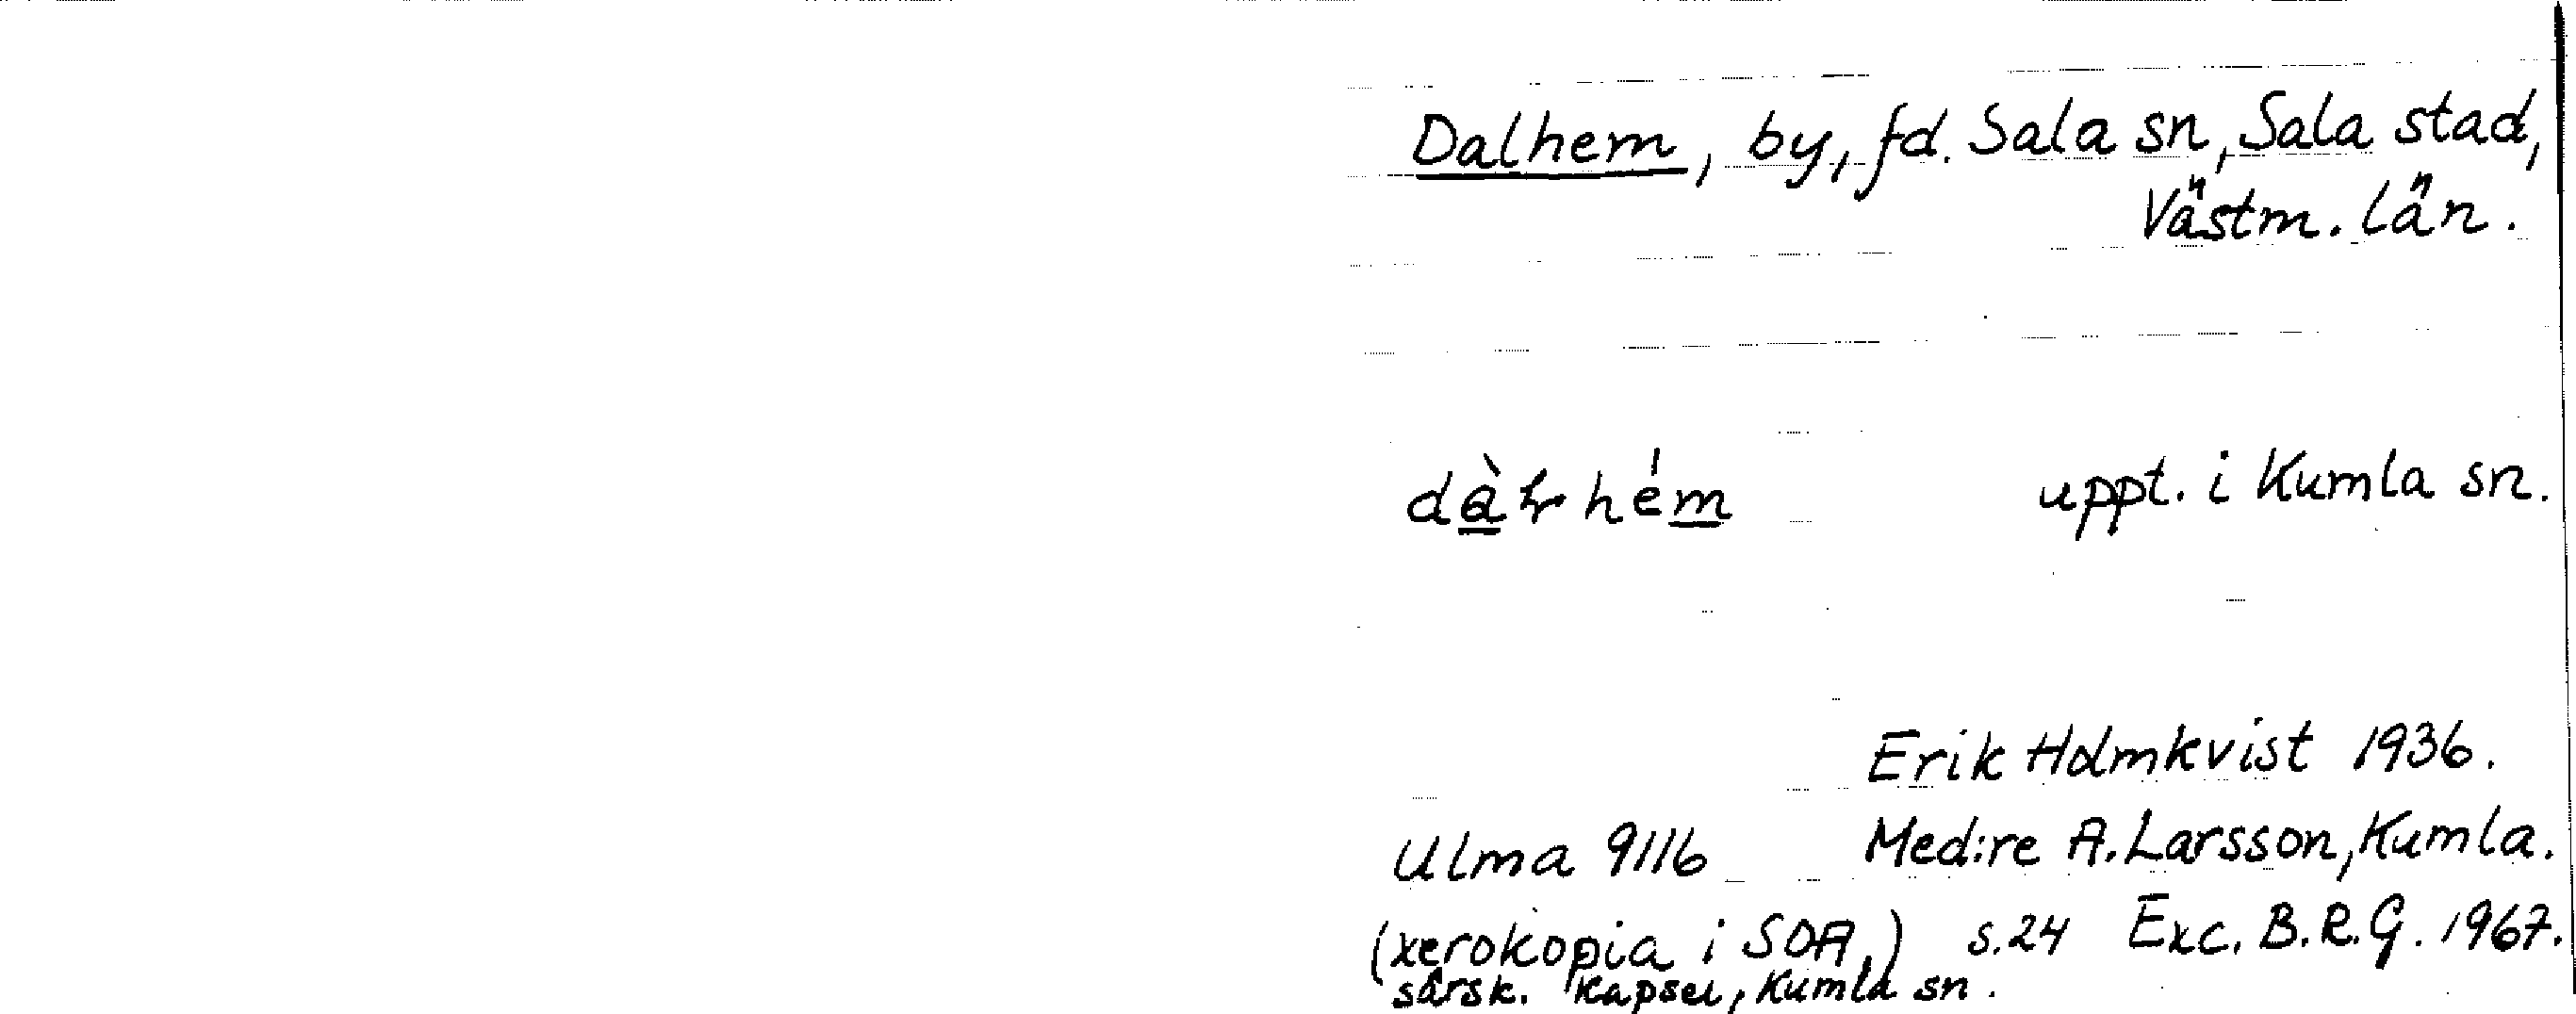 Dalhem, by, fd. Sala sn, Sala stad,
Västm. län.
uppt. i Kumla sn.
Erik Holmkvist 1936.
Ulma 9116 Med:re A. Larsson, Kumla.
(xerokopia i SOA,) s.24 Exc. B.R.G. 1967.
särsk. kapsel, Kumla sn.